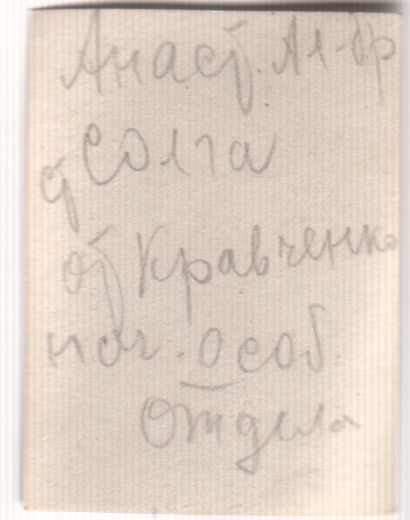 Анаст. Ал-др
от Кравченко
нач. Особ.
Отдела